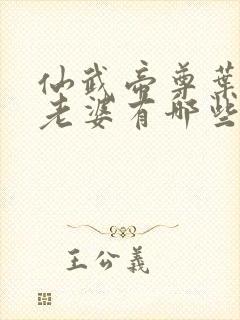 仙武帝尊葉
老婆有哪些
王公義